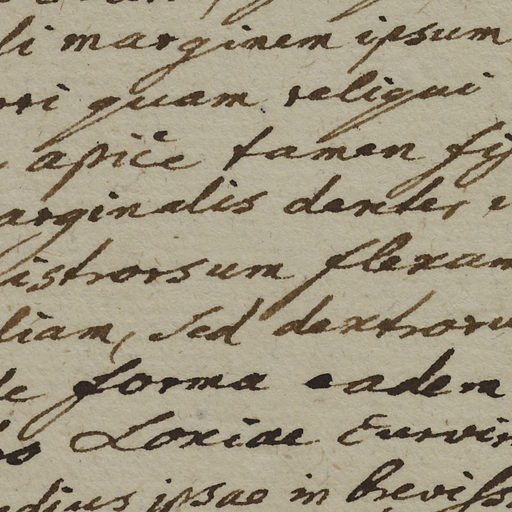 li marginem ipsum
quam reliqui
apice tamen
marginalis denter
istrorsum flexam
liam, sed dextroru
forma eadem
Loxiae Curvir
ipsae in breviss